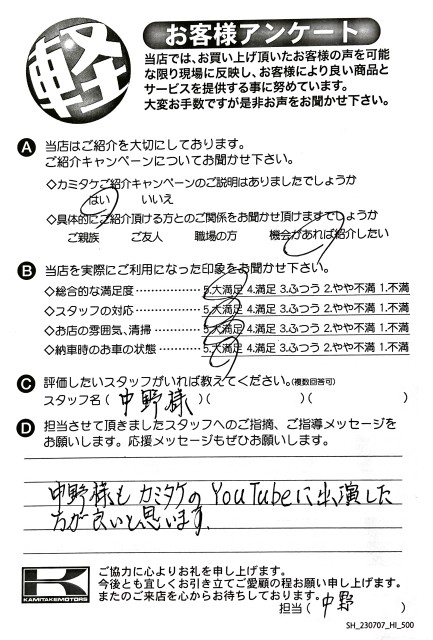 軽
お客様アンケート
当店では、お買い上げ頂いたお客様の声を可能
な限り現場に反映し、お客様により良い商品と
サービスを提供する事に努めています。
大変お手数ですが是非お声をお聞かせ下さい。
A 当店はご紹介を大切にしております。
ご紹介キャンペーンについてお聞かせ下さい。
◇カミタケご紹介キャンペーンのご説明はありましたでしょうか
はい いいえ
◇具体的にご紹介頂ける方とのご関係をお聞かせ頂けますでしょうか
ご親族 ご友人 職場の方 機会があれば紹介したい
B 当店を実際にご利用になった印象をお聞かせ下さい。
◇総合的な満足度 …………… 5.大満足 4.満足 3.ふつう 2.やや不満 1.不満
◇スタッフの対応 …………… 5.大満足 4.満足 3.ふつう 2.やや不満 1.不満
◇お店の雰囲気、清掃 ……… 5.大満足 4.満足 3.ふつう 2.やや不満 1.不満
◇納車時のお車の状態 ……… 5.大満足 4.満足 3.ふつう 2.やや不満 1.不満
C 評価したいスタッフがいれば教えてください。(複数回答可)
スタッフ名( 中野様 )( )( )
D 担当させて頂きましたスタッフへのご指摘、ご指導メッセージを
お願いします。応援メッセージもぜひお願いします。
中野様も カミタケの YouTubeに出演した
方が良いと思います。
KAMITAKEMOTORS
ご協力に心よりお礼を申し上げます。
今後とも宜しくお引き立てご愛顧の程お願い申し上げます。
またのご来店を心からお待ちしております。
担当( 中野 )
SH_230707_HI_500